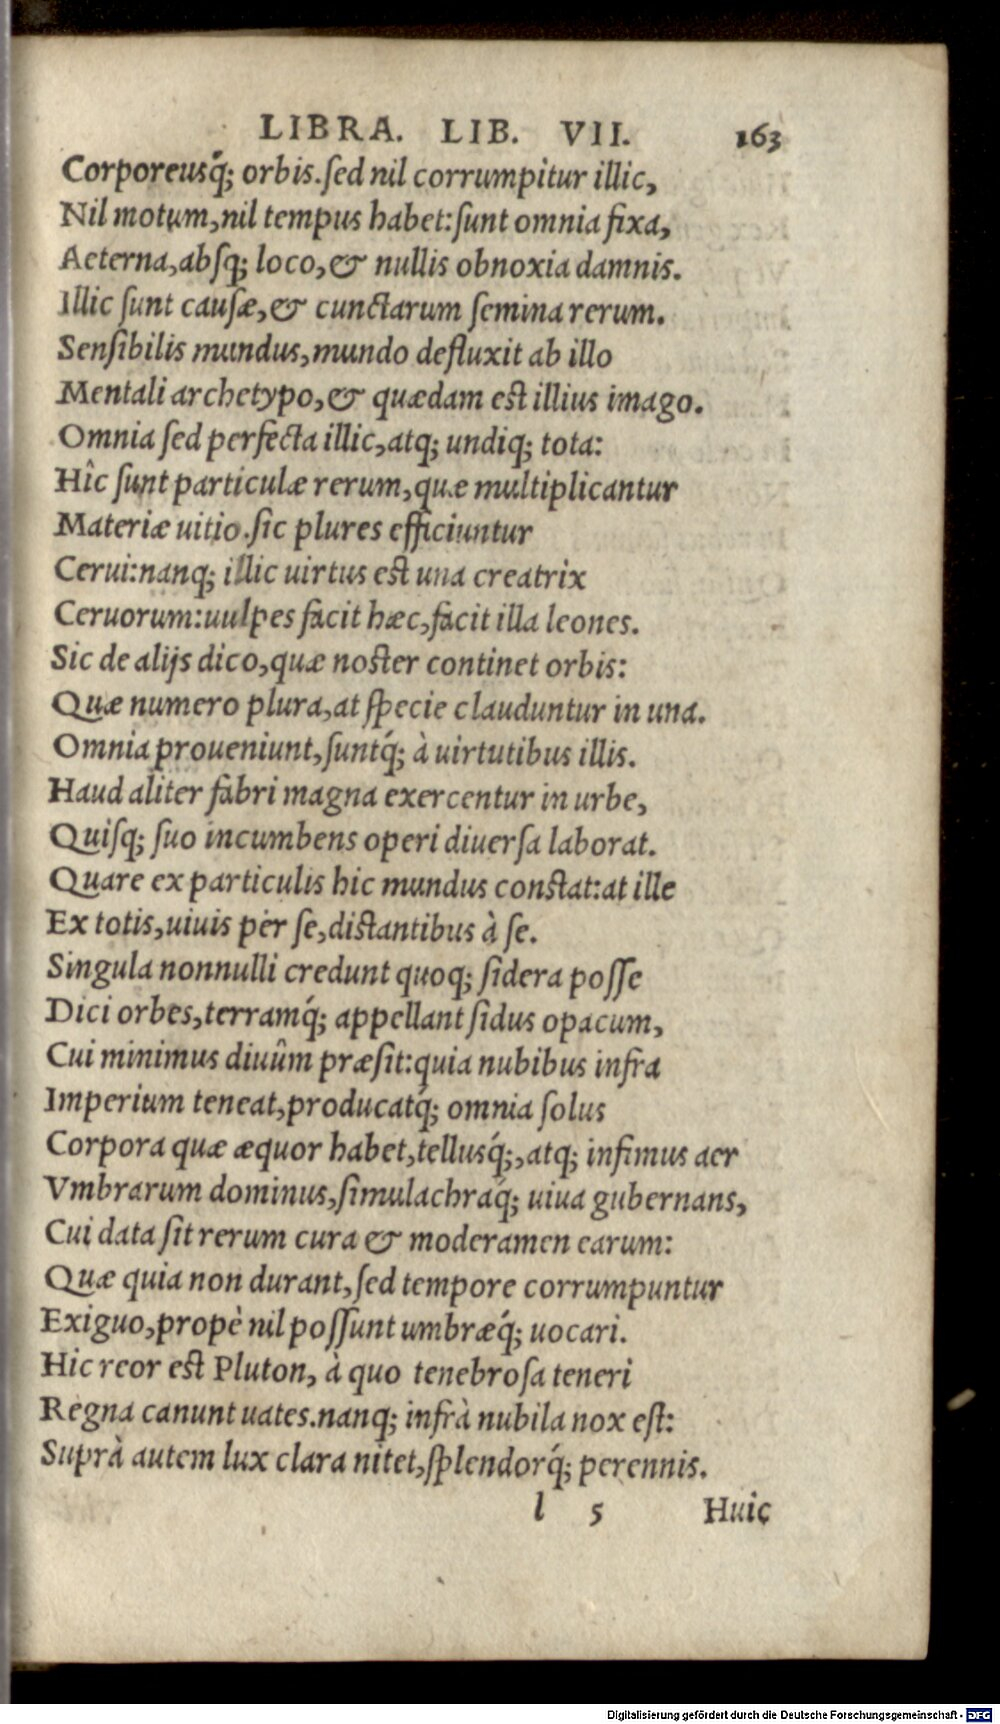 LIBRA. LIB. VII. 163
Corporeusq́; orbis. sed nil corrumpitur illic,
Nil motum, nil tempus habet: sunt omnia fixa,
Aeterna, absq; loco, & nullis obnoxia damnis.
Illic sunt causæ, & cunctarum semina rerum.
Sensibilis mundus, mundo defluxit ab illo
Mentali archetypo, & quædam est illius imago.
Omnia sed perfecta illic, atq; undiq; tota:
Hîc sunt particulæ rerum, quæ multiplicantur
Materiæ uitio. sic plures efficiuntur
Cerui: nanq; illic uirtus est una creatrix
Ceruorum: uulpes facit hæc, facit illa leones.
Sic de alijs dico, quæ noster continet orbis:
Quæ numero plura, at specie clauduntur in una.
Omnia proueniunt, suntq́; à uirtutibus illis.
Haud aliter fabri magna exercentur in urbe,
Quisq; suo incumbens operi diuersa laborat.
Quare ex particulis hic mundus constat: at ille
Ex totis, uiuis per se, distantibus à se.
Singula nonnulli credunt quoq; sidera posse
Dici orbes, terramq́; appellant sidus opacum,
Cui minimus diuûm præsit: quia nubibus infra
Imperium teneat, producatq́; omnia solus
Corpora quæ æquor habet, tellusq́;, atq; infimus aer
Vmbrarum dominus, simulachraq́; uiua gubernans,
Cui data sit rerum cura & moderamen earum:
Quæ quia non durant, sed tempore corrumpuntur
Exiguo, propè nil possunt umbræq́; uocari.
Hic reor est Pluton, à quo tenebrosa teneri
Regna canunt uates. nanq; infrà nubila nox est:
Suprà autem lux clara nitet, splendorq́; perennis.
l 5 Huic
Digitalisierung gefördert durch die Deutsche Forschungsgemeinschaft - DFG